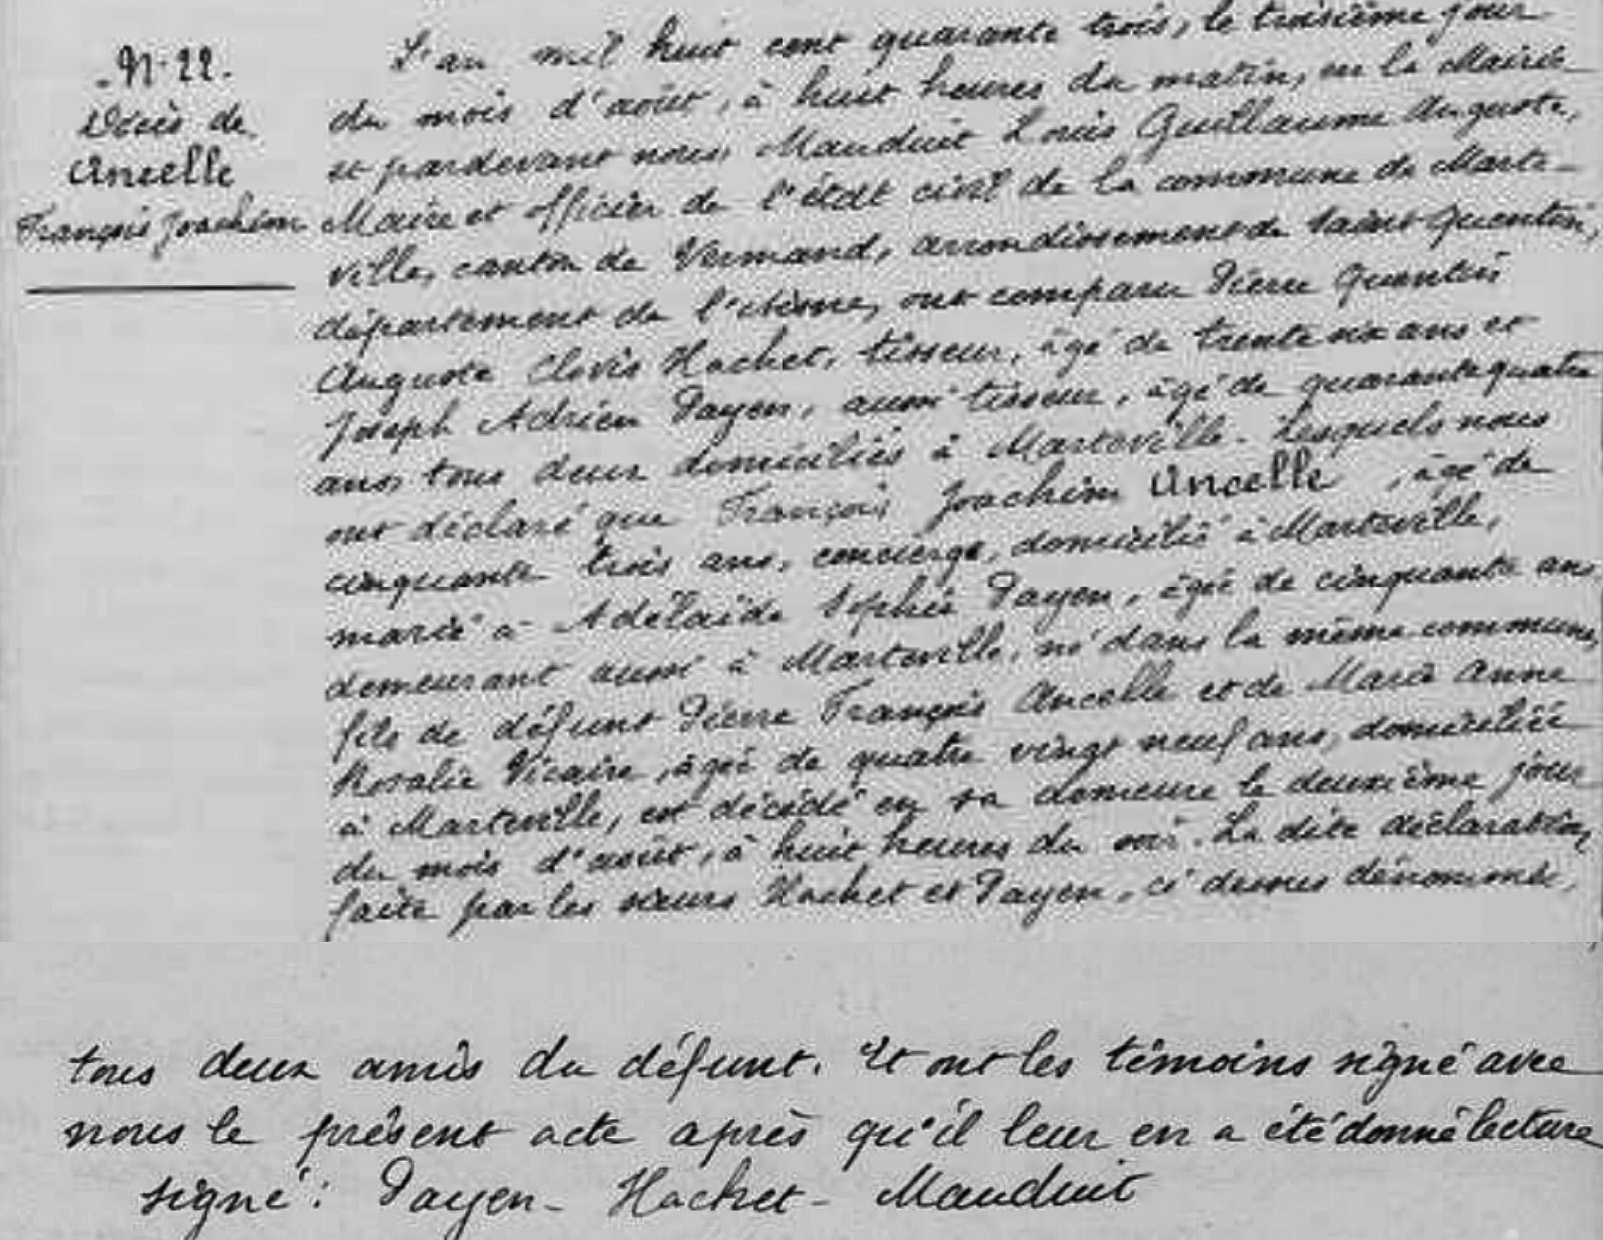 N° 22.
Décès de
Ancelle
François Joachim
L'an mil huit cent quarante trois, le troisième jour
du mois d'août, à huit heures du matin, en la Mairie
et pardevant nous, Mauduit Louis Guillaume Auguste,
Maire et officier de l'état civil de la commune de Marte-
ville, canton de Vermand, arrondissement de Saint-Quentin,
département de l'Aisne, ont comparu Pierre Quentin
Auguste Clovis Hachet, tisseur, âgé de trente six ans et
Joseph Adrien Payen, aussi tisseur, âgé de quarante quatre
ans, tous deux domiciliés à Marteville. Lesquels nous
ont déclaré que François Joachim Ancelle, âgé de
cinquante trois ans, concierge, domicilié à Marteville,
marié à Adélaïde Sophie Payen, âgée de cinquante ans
demeurant aussi à Marteville, né dans la même commune,
fils de défunt Pierre François Ancelle et de Marie Anne
Rosalie Vicaire, âgée de quatre vingt neuf ans, domiciliée
à Marteville, est décédé en sa demeure le deuxième jour
du mois d'août, à huit heures du soir. La dite déclaration,
faite par les sieurs Hachet et Payen, ci dessus dénommés,
tous deux amis du défunt. Et ont les témoins signé avec
nous le présent acte après qu'il leur en a été donné lecture
signé : Payen - Hachet - Mauduit